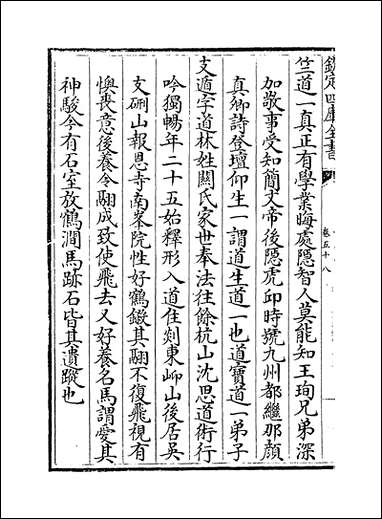 欽定四庫全書
卷五十八
竺道一真正有學業晦處隱智人莫能知王珣兄弟深
加敬事受知簡文帝後隱虎邱時號九州都繼那顔
真卿詩登壇仰生一謂道生道一也道寶道一弟子
支遁字道林姓關氏家世奉法往餘杭山沈思道術行
吟獨暢年二十五始釋形入道住剡東岇山後居吳
支硎山報恩寺南峯院性好鶴鎩其翮不復飛視有
懊喪意後養令翮成致使飛去又好養名馬謂愛其
神駿今有石室放鶴澗馬跡石皆其遺蹤也